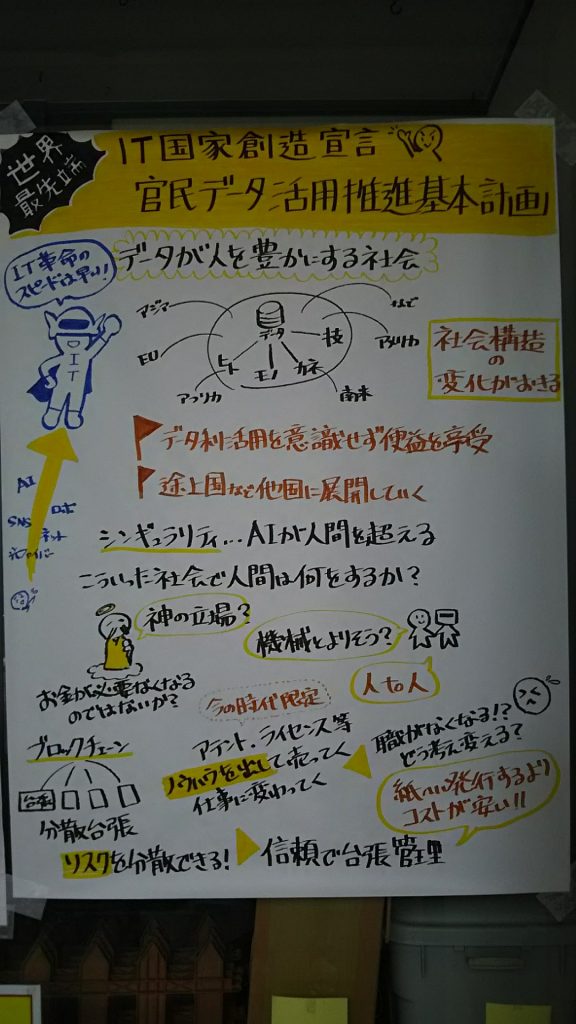 世界
最先端
IT国家創造宣言
官民データ活用推進基本計画
IT革命の
スピードは早い!
データが人を豊かにする社会
アジア
など
データ
EU
ヒト
モノ
カネ
技
アメリカ
アフリカ
南米
IT
社会構造
の
変化がおきる
データ利活用を意識せず便益を享受
途上国など他国に展開していく
AI
SNS
ロボ
ネット
光ファイバー
シンギュラリティ…AIが人間を超える
こういった社会で人間は何をするか?
神の立場?
機械とよりそう?
人to人
お金が必要なくなる
のではないか?
今の時代限定
アテント、ライセンス等
ノウハウを出して売ってく
仕事に変わってく
職がなくなる!?
どう考え変える?
ブロックチェーン
台帳
分散台張
紙へ発行するより
コストが安い!!
リスクを分散できる!
信頼で台張管理